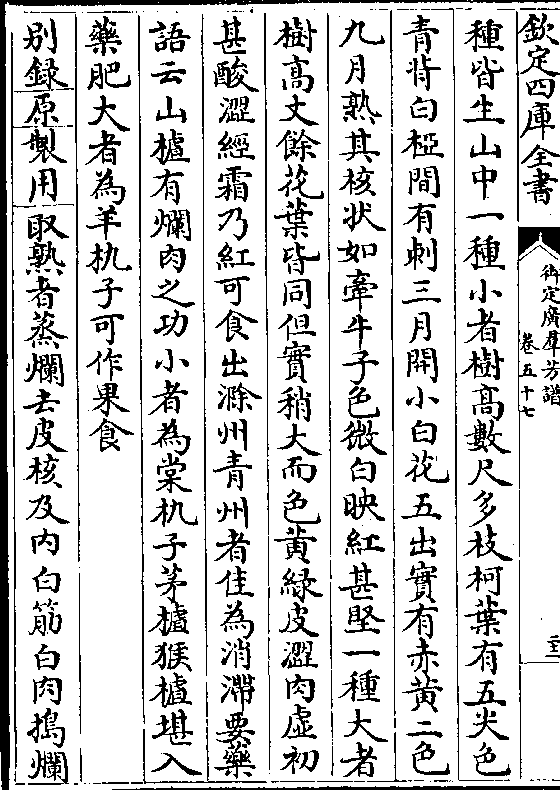 欽定四庫全書
御定廣羣芳譜
卷五十七
種皆生山中一種小者樹高數尺多枝柯葉有五尖色
青背白椏間有刺三月開小白花五出實有赤黃二色
九月熟其核狀如牽牛子色微白映紅甚堅一種大者
樹高丈餘花葉皆同但實稍大而色黃綠皮澀肉虛初
甚酸澀經霜乃紅可食出滁州青州者佳為消滯要藥
語云山樝有爛肉之功小者為棠朹子茅樝猴樝堪入
藥肥大者為羊朹子可作果食
別錄原製用取熟者蒸爛去皮核及內白筋白肉搗爛